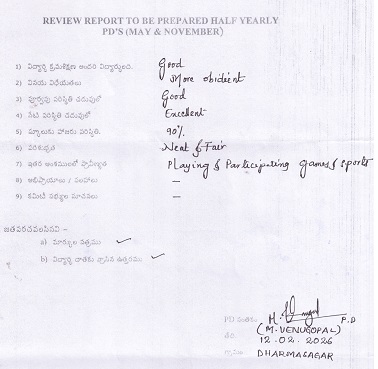 REVIEW REPORT TO BE PREPARED HALF YEARLY
PD'S (MAY & NOVEMBER)
1) విద్యార్థి క్రమశిక్షణ అందరి విద్యార్థులది. Good
2) వినయ విధేయతలు More obidient
3) పూర్వపు పరిస్థితి చదువులో Good
4) నేటి పరిస్థితి చదువులో Excellent
5) స్కూలుకు హాజరు పరిస్థితి. 90%
6) పరిశుభ్రత Neat & Fair
7) ఇతర అంశములలో ప్రావీణ్యత Playing & Participating Games & Sports
8) అభిప్రాయాలు / సలహాలు –
9) కమిటీ సభ్యుల సూచనలు –
జతపరచవలసినవి –
a) మార్కుల పత్రము ✓
b) విద్యార్థి దాతకు వ్రాసిన ఉత్తరము ✓
PD సంతకం P.D
(M. VENUGOPAL)
తేది 12.02.2026
గ్రామం DHARMASAGAR